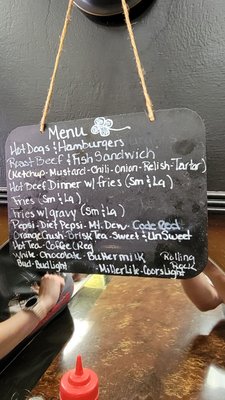 Menu
Hot Dogs & Hamburgers
Roast Beef & Fish Sandwich
(Ketchup - Mustard - Chili - Onion - Relish - Tartar)
Hot Beef Dinner w/ fries (Sm & Lg)
Fries (Sm & Lg)
Fries w/ gravy (Sm & Lg)
Pepsi - Diet Pepsi - Mt. Dew - Code Red
Orange Crush - Orisk Tea - Sweet & UnSweet
Hot Tea - Coffee (Reg
White - Chocolate - Buttermilk Rolling Rock
Bud - Bud Light - Miller Lite - Coors Light